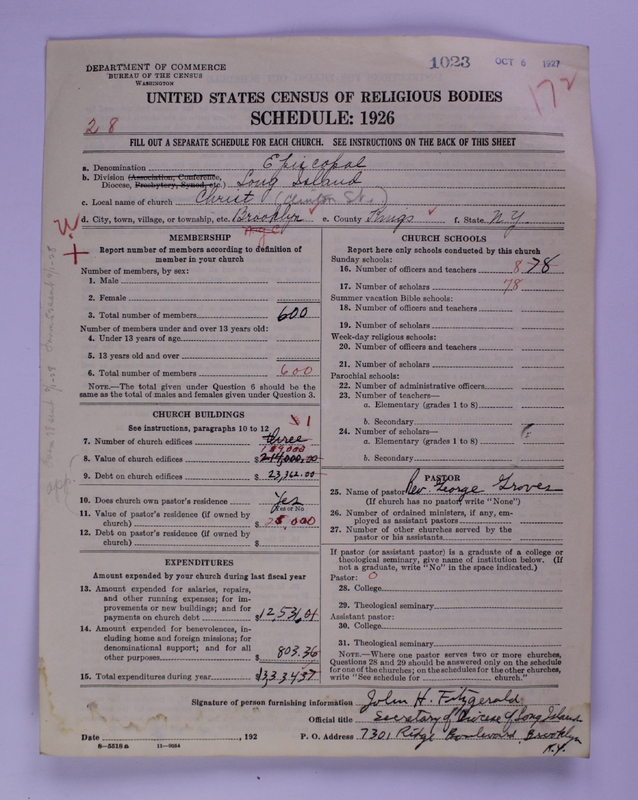 DEPARTMENT OF COMMERCE
BUREAU OF THE CENSUS
WASHINGTON
1023 OCT 6 1927
172
UNITED STATES CENSUS OF RELIGIOUS BODIES
SCHEDULE: 1926
28
FILL OUT A SEPARATE SCHEDULE FOR EACH CHURCH. SEE INSTRUCTIONS ON THE BACK OF THIS SHEET
a. Denomination Episcopal
b. Division (Association, Conference,
Diocese, Presbytery, Synod, etc.) Long Island
c. Local name of church Christ (Clinton St.)
d. City, town, village, or township, etc. Brooklyn e. County Kings f. State N.Y.
MEMBERSHIP
Report number of members according to definition of
member in your church
Number of members, by sex:
1. Male
2. Female
3. Total number of members 600
Number of members under and over 13 years old:
4. Under 13 years of age
5. 13 years old and over
6. Total number of members 600
NOTE.—The total given under Question 6 should be the
same as the total of males and females given under Question 3.
CHURCH BUILDINGS
See instructions, paragraphs 10 to 12
1
7. Number of church edifices three
8. Value of church edifices $ 214,000.00
9. Debt on church edifices $ 23,362.00
10. Does church own pastor's residence Yes
Yes or No
11. Value of pastor's residence (if owned by
church) $ 25,000
12. Debt on pastor's residence (if owned by
church) $
EXPENDITURES
Amount expended by your church during last fiscal year
13. Amount expended for salaries, repairs,
and other running expenses; for im-
provements or new buildings; and for
payments on church debt $ 12,531.01
14. Amount expended for benevolences, in-
cluding home and foreign missions; for
denominational support; and for all
other purposes $ 803.36
15. Total expenditures during year $
CHURCH SCHOOLS
Report here only schools conducted by this church
Sunday schools:
16. Number of officers and teachers 8 78
17. Number of scholars 78
Summer vacation Bible schools:
18. Number of officers and teachers
19. Number of scholars
Week-day religious schools:
20. Number of officers and teachers
21. Number of scholars
Parochial schools:
22. Number of administrative officers
23. Number of teachers—
a. Elementary (grades 1 to 8)
b. Secondary
24. Number of scholars—
a. Elementary (grades 1 to 8)
b. Secondary
PASTOR
25. Name of pastor Rev. George Groves
(If church has no pastor, write "None")
26. Number of ordained ministers, if any, em-
ployed as assistant pastors
27. Number of other churches served by the
pastor or his assistants
If pastor (or assistant pastor) is a graduate of a college or
theological seminary, give name of institution below. (If
not a graduate, write "No" in the space indicated.)
Pastor: 0
28. College
29. Theological seminary
Assistant pastor:
30. College
31. Theological seminary
NOTE.—Where one pastor serves two or more churches,
Questions 28 and 29 should be answered only on the schedule
for one of the churches; on the schedules for the other churches,
write "See schedule for church."
Signature of person furnishing information John H. Fitzgerald
Official title Secretary of Diocese of Long Island
Date , 192 P. O. Address 7301 Ridge Boulevard, Brooklyn
N.Y.
8—5518a 11—9054